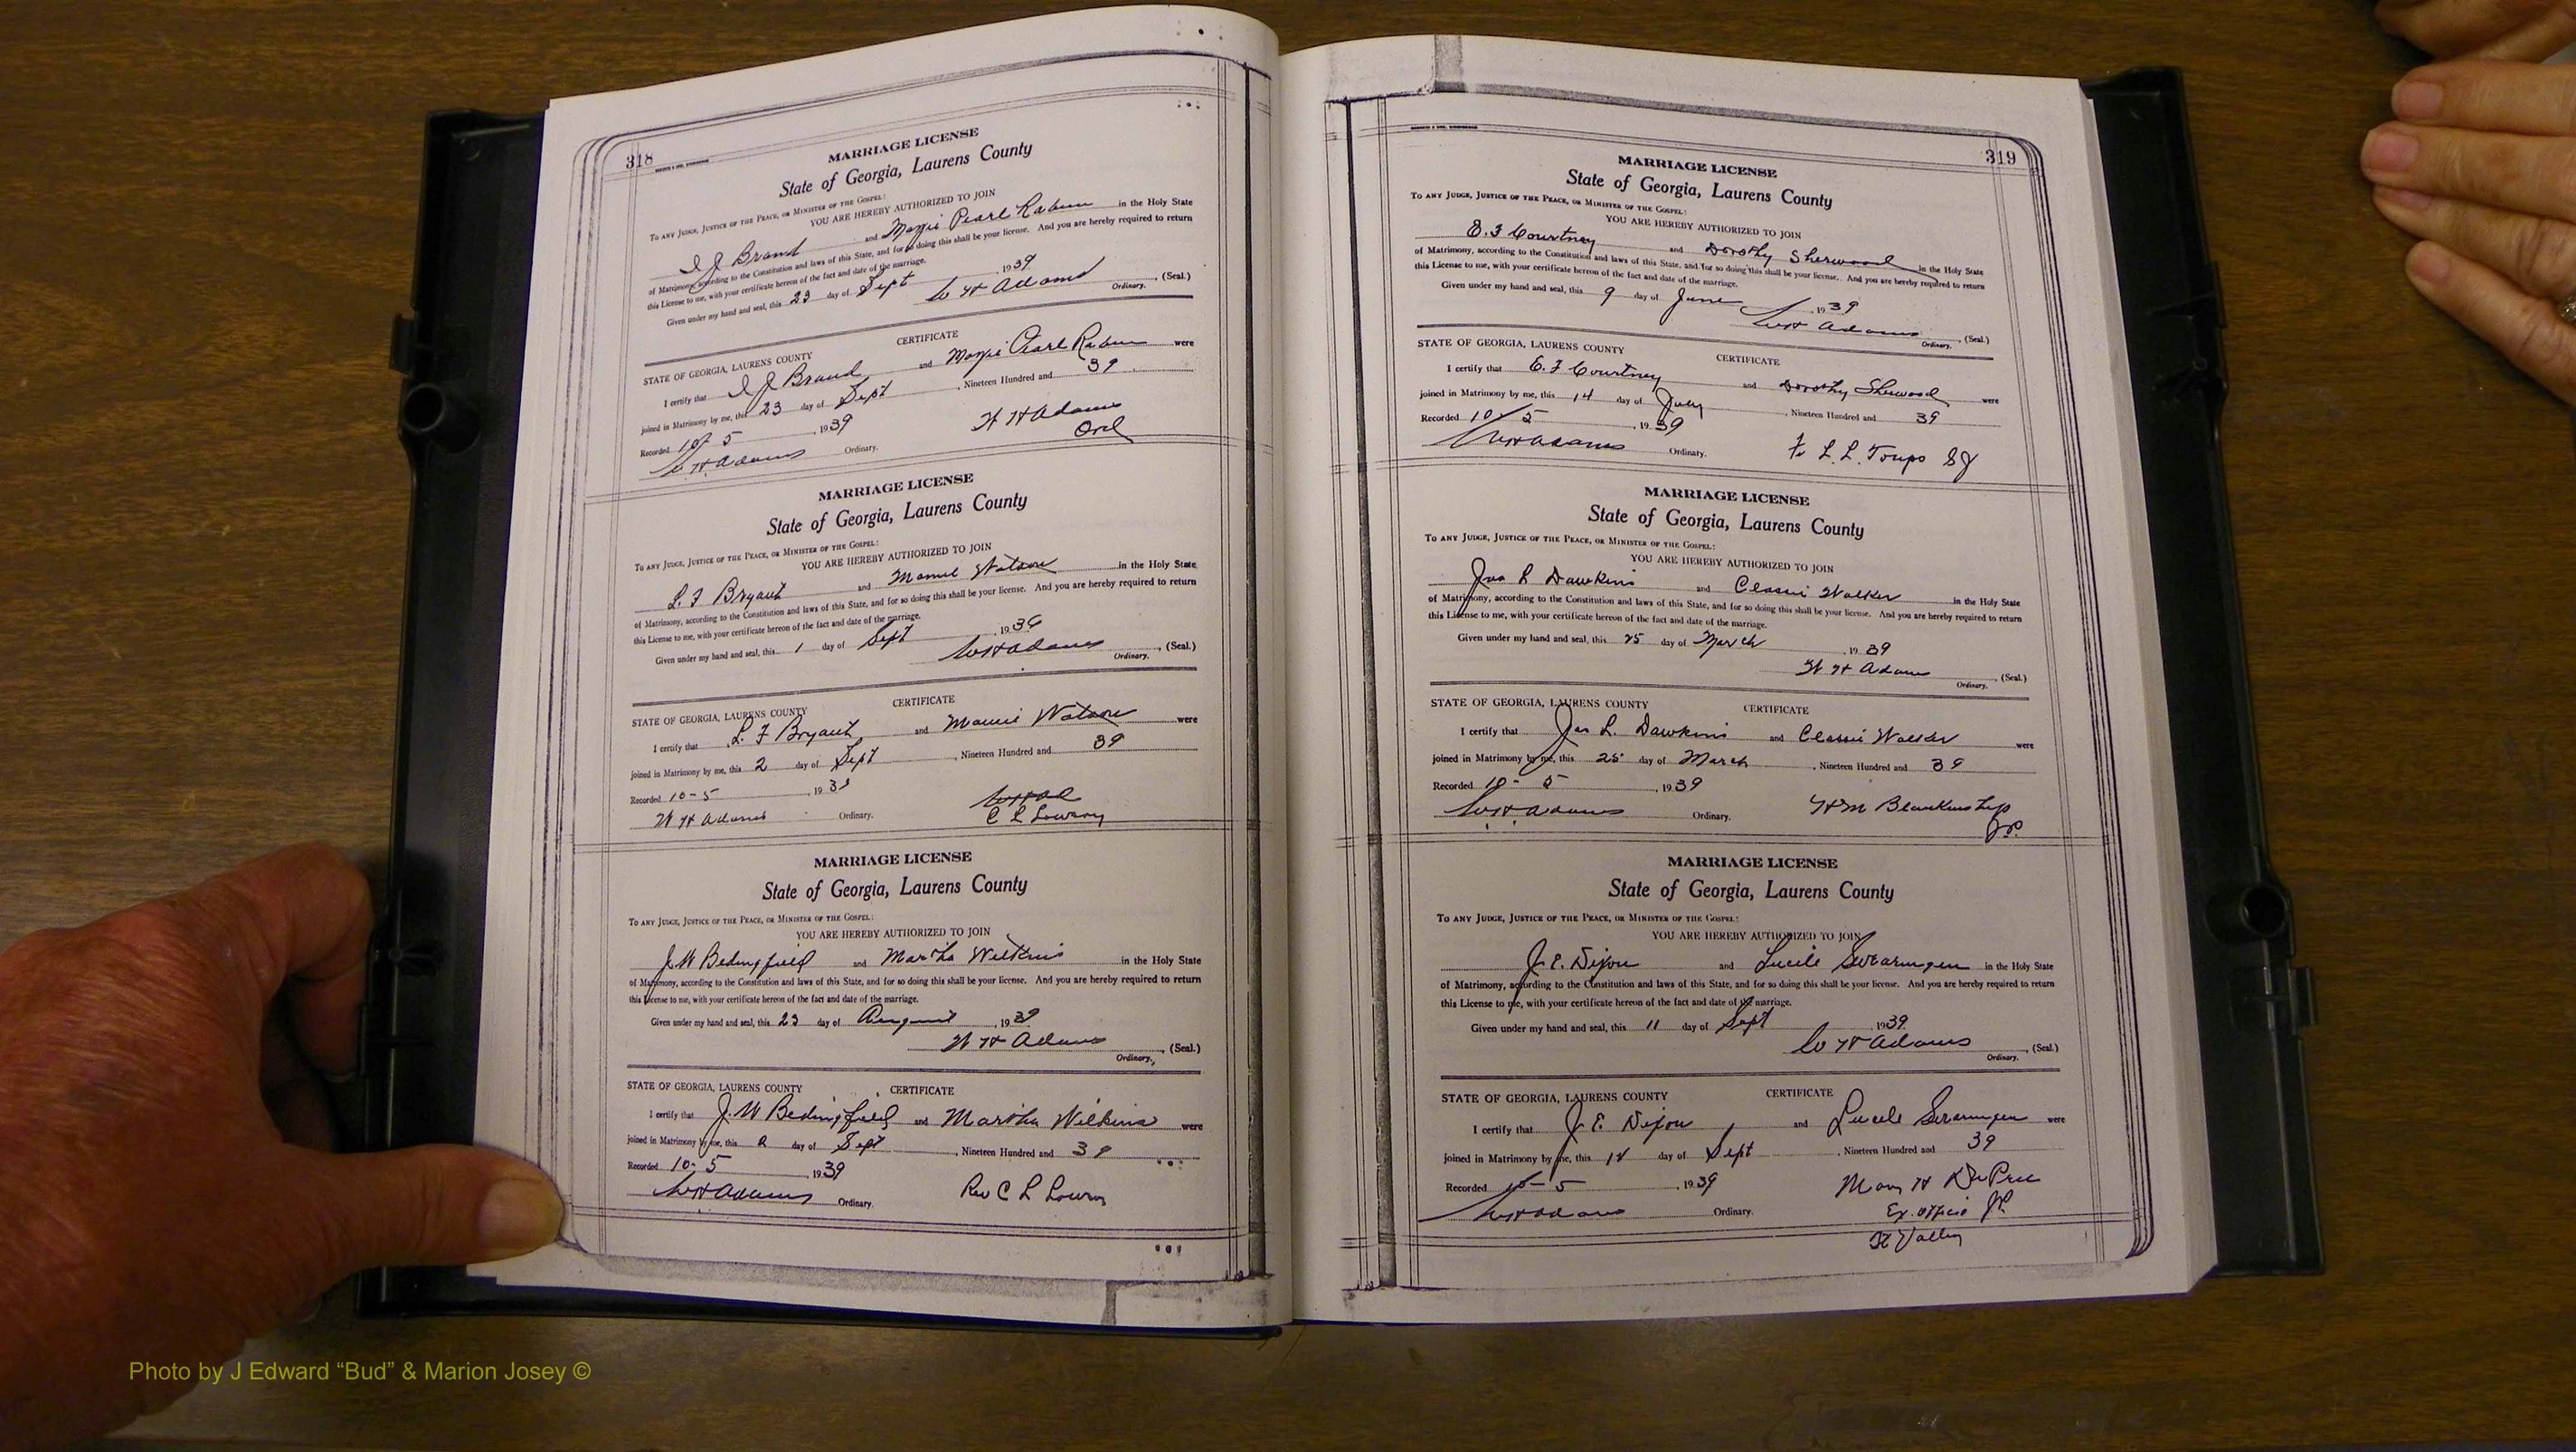 318
MARRIAGE LICENSE
State of Georgia, Laurens County
To ANY JUDGE, JUSTICE OF THE PEACE, OR MINISTER OF THE GOSPEL:
YOU ARE HEREBY AUTHORIZED TO JOIN
I J Brand and Pearl in the Holy State
of Matrimony, according to the Constitution and laws of this State, and for so doing this shall be your license. And you are hereby required to return
this License to me, with your certificate hereon of the fact and date of the marriage.
Given under my hand and seal, this 23 day of Sept, 1939
W H Adams, (Seal.)
Ordinary.
CERTIFICATE
STATE OF GEORGIA, LAURENS COUNTY
I certify that I J Brand and Pearl were
joined in Matrimony by me, this 23 day of Sept, Nineteen Hundred and 39.
Recorded 10/5, 1939
W H Adams Ordinary.
W H Adams
Ord
MARRIAGE LICENSE
State of Georgia, Laurens County
To ANY JUDGE, JUSTICE OF THE PEACE, OR MINISTER OF THE GOSPEL:
YOU ARE HEREBY AUTHORIZED TO JOIN
L. F Bryant and Mamie Watson in the Holy State
of Matrimony, according to the Constitution and laws of this State, and for so doing this shall be your license. And you are hereby required to return
this License to me, with your certificate hereon of the fact and date of the marriage.
Given under my hand and seal, this 1 day of Sept, 1939
W H Adams, (Seal.)
Ordinary.
CERTIFICATE
STATE OF GEORGIA, LAURENS COUNTY
I certify that L. F Bryant and Mamie Watson were
joined in Matrimony by me, this 2 day of Sept, Nineteen Hundred and 39
Recorded 10-5, 1939
W H Adams Ordinary.
C L Lowery
MARRIAGE LICENSE
State of Georgia, Laurens County
To ANY JUDGE, JUSTICE OF THE PEACE, OR MINISTER OF THE GOSPEL:
YOU ARE HEREBY AUTHORIZED TO JOIN
J. W Bedingfield and Martha Wilkins in the Holy State
of Matrimony, according to the Constitution and laws of this State, and for so doing this shall be your license. And you are hereby required to return
this License to me, with your certificate hereon of the fact and date of the marriage.
Given under my hand and seal, this 23 day of August, 1939
W H Adams, (Seal.)
Ordinary.
STATE OF GEORGIA, LAURENS COUNTY CERTIFICATE
I certify that J. W Bedingfield and Martha Wilkins were
joined in Matrimony by me, this 2 day of Sept, Nineteen Hundred and 39
Recorded 10-5, 1939
W H Adams Ordinary.
Rev C L Lowery
319
MARRIAGE LICENSE
State of Georgia, Laurens County
To ANY JUDGE, JUSTICE OF THE PEACE, OR MINISTER OF THE GOSPEL:
YOU ARE HEREBY AUTHORIZED TO JOIN
E. F Courtney and Dorothy Sherwood in the Holy State
of Matrimony, according to the Constitution and laws of this State, and for so doing this shall be your license. And you are hereby required to return
this License to me, with your certificate hereon of the fact and date of the marriage.
Given under my hand and seal, this 9 day of June, 1939
W H Adams, (Seal.)
Ordinary.
STATE OF GEORGIA, LAURENS COUNTY
CERTIFICATE
I certify that E. F Courtney and Dorothy Sherwood were
joined in Matrimony by me, this 14 day of July, Nineteen Hundred and 39
Recorded 10/5, 1939
W H Adams Ordinary.
Fr L. L. Toups SJ
MARRIAGE LICENSE
State of Georgia, Laurens County
To ANY JUDGE, JUSTICE OF THE PEACE, OR MINISTER OF THE GOSPEL:
YOU ARE HEREBY AUTHORIZED TO JOIN
Jas L Dawkins and Classie Walker in the Holy State
of Matrimony, according to the Constitution and laws of this State, and for so doing this shall be your license. And you are hereby required to return
this License to me, with your certificate hereon of the fact and date of the marriage.
Given under my hand and seal, this 25 day of March, 1939
W H Adams, (Seal.)
Ordinary.
STATE OF GEORGIA, LAURENS COUNTY
CERTIFICATE
I certify that Jas L. Dawkins and Classie Walker were
joined in Matrimony by me, this 25 day of March, Nineteen Hundred and 39
Recorded 10-5, 1939
W H Adams Ordinary.
H M Blankinship
JP.
MARRIAGE LICENSE
State of Georgia, Laurens County
To ANY JUDGE, JUSTICE OF THE PEACE, OR MINISTER OF THE GOSPEL:
YOU ARE HEREBY AUTHORIZED TO JOIN
J. E. Dixon and Lucile Swearingen in the Holy State
of Matrimony, according to the Constitution and laws of this State, and for so doing this shall be your license. And you are hereby required to return
this License to me, with your certificate hereon of the fact and date of the marriage.
Given under my hand and seal, this 11 day of Sept, 1939
W H Adams, (Seal.)
Ordinary.
STATE OF GEORGIA, LAURENS COUNTY
CERTIFICATE
I certify that J. E. Dixon and Lucile were
joined in Matrimony by me, this day of Sept, Nineteen Hundred and 39
Recorded 10-5, 1939
W H Adams Ordinary.
H DuPree
Ex. officio JP.
Ft Valley
Photo by J Edward “Bud” & Marion Josey ©